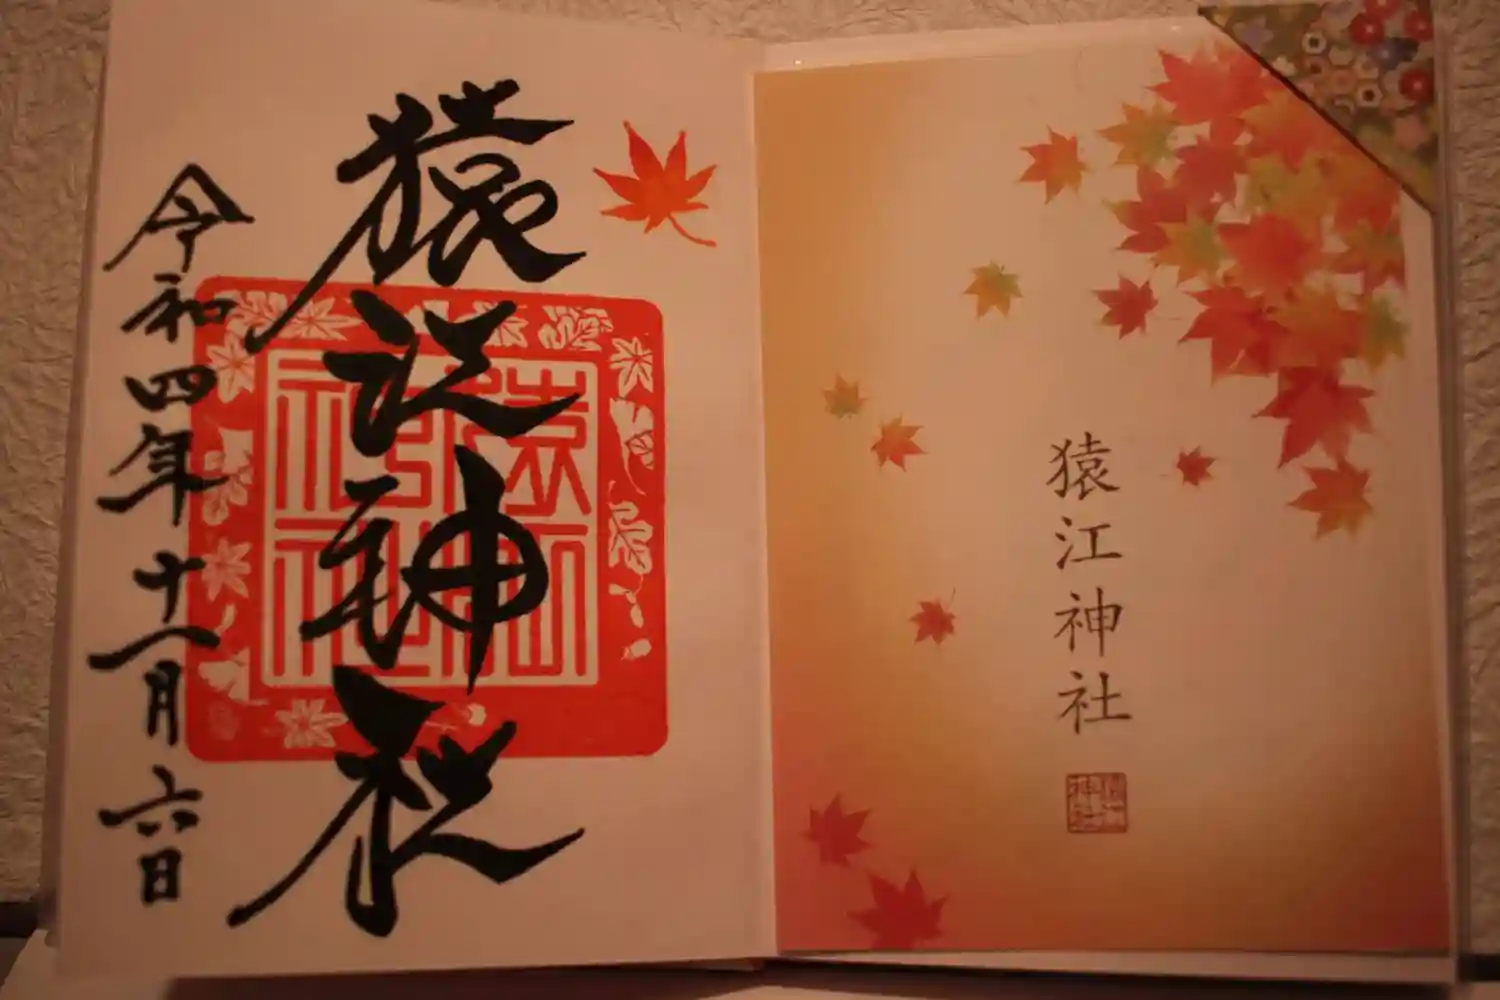 猿江神社
令和四年十一月六日
猿江神社
猿江神社
猿江神社